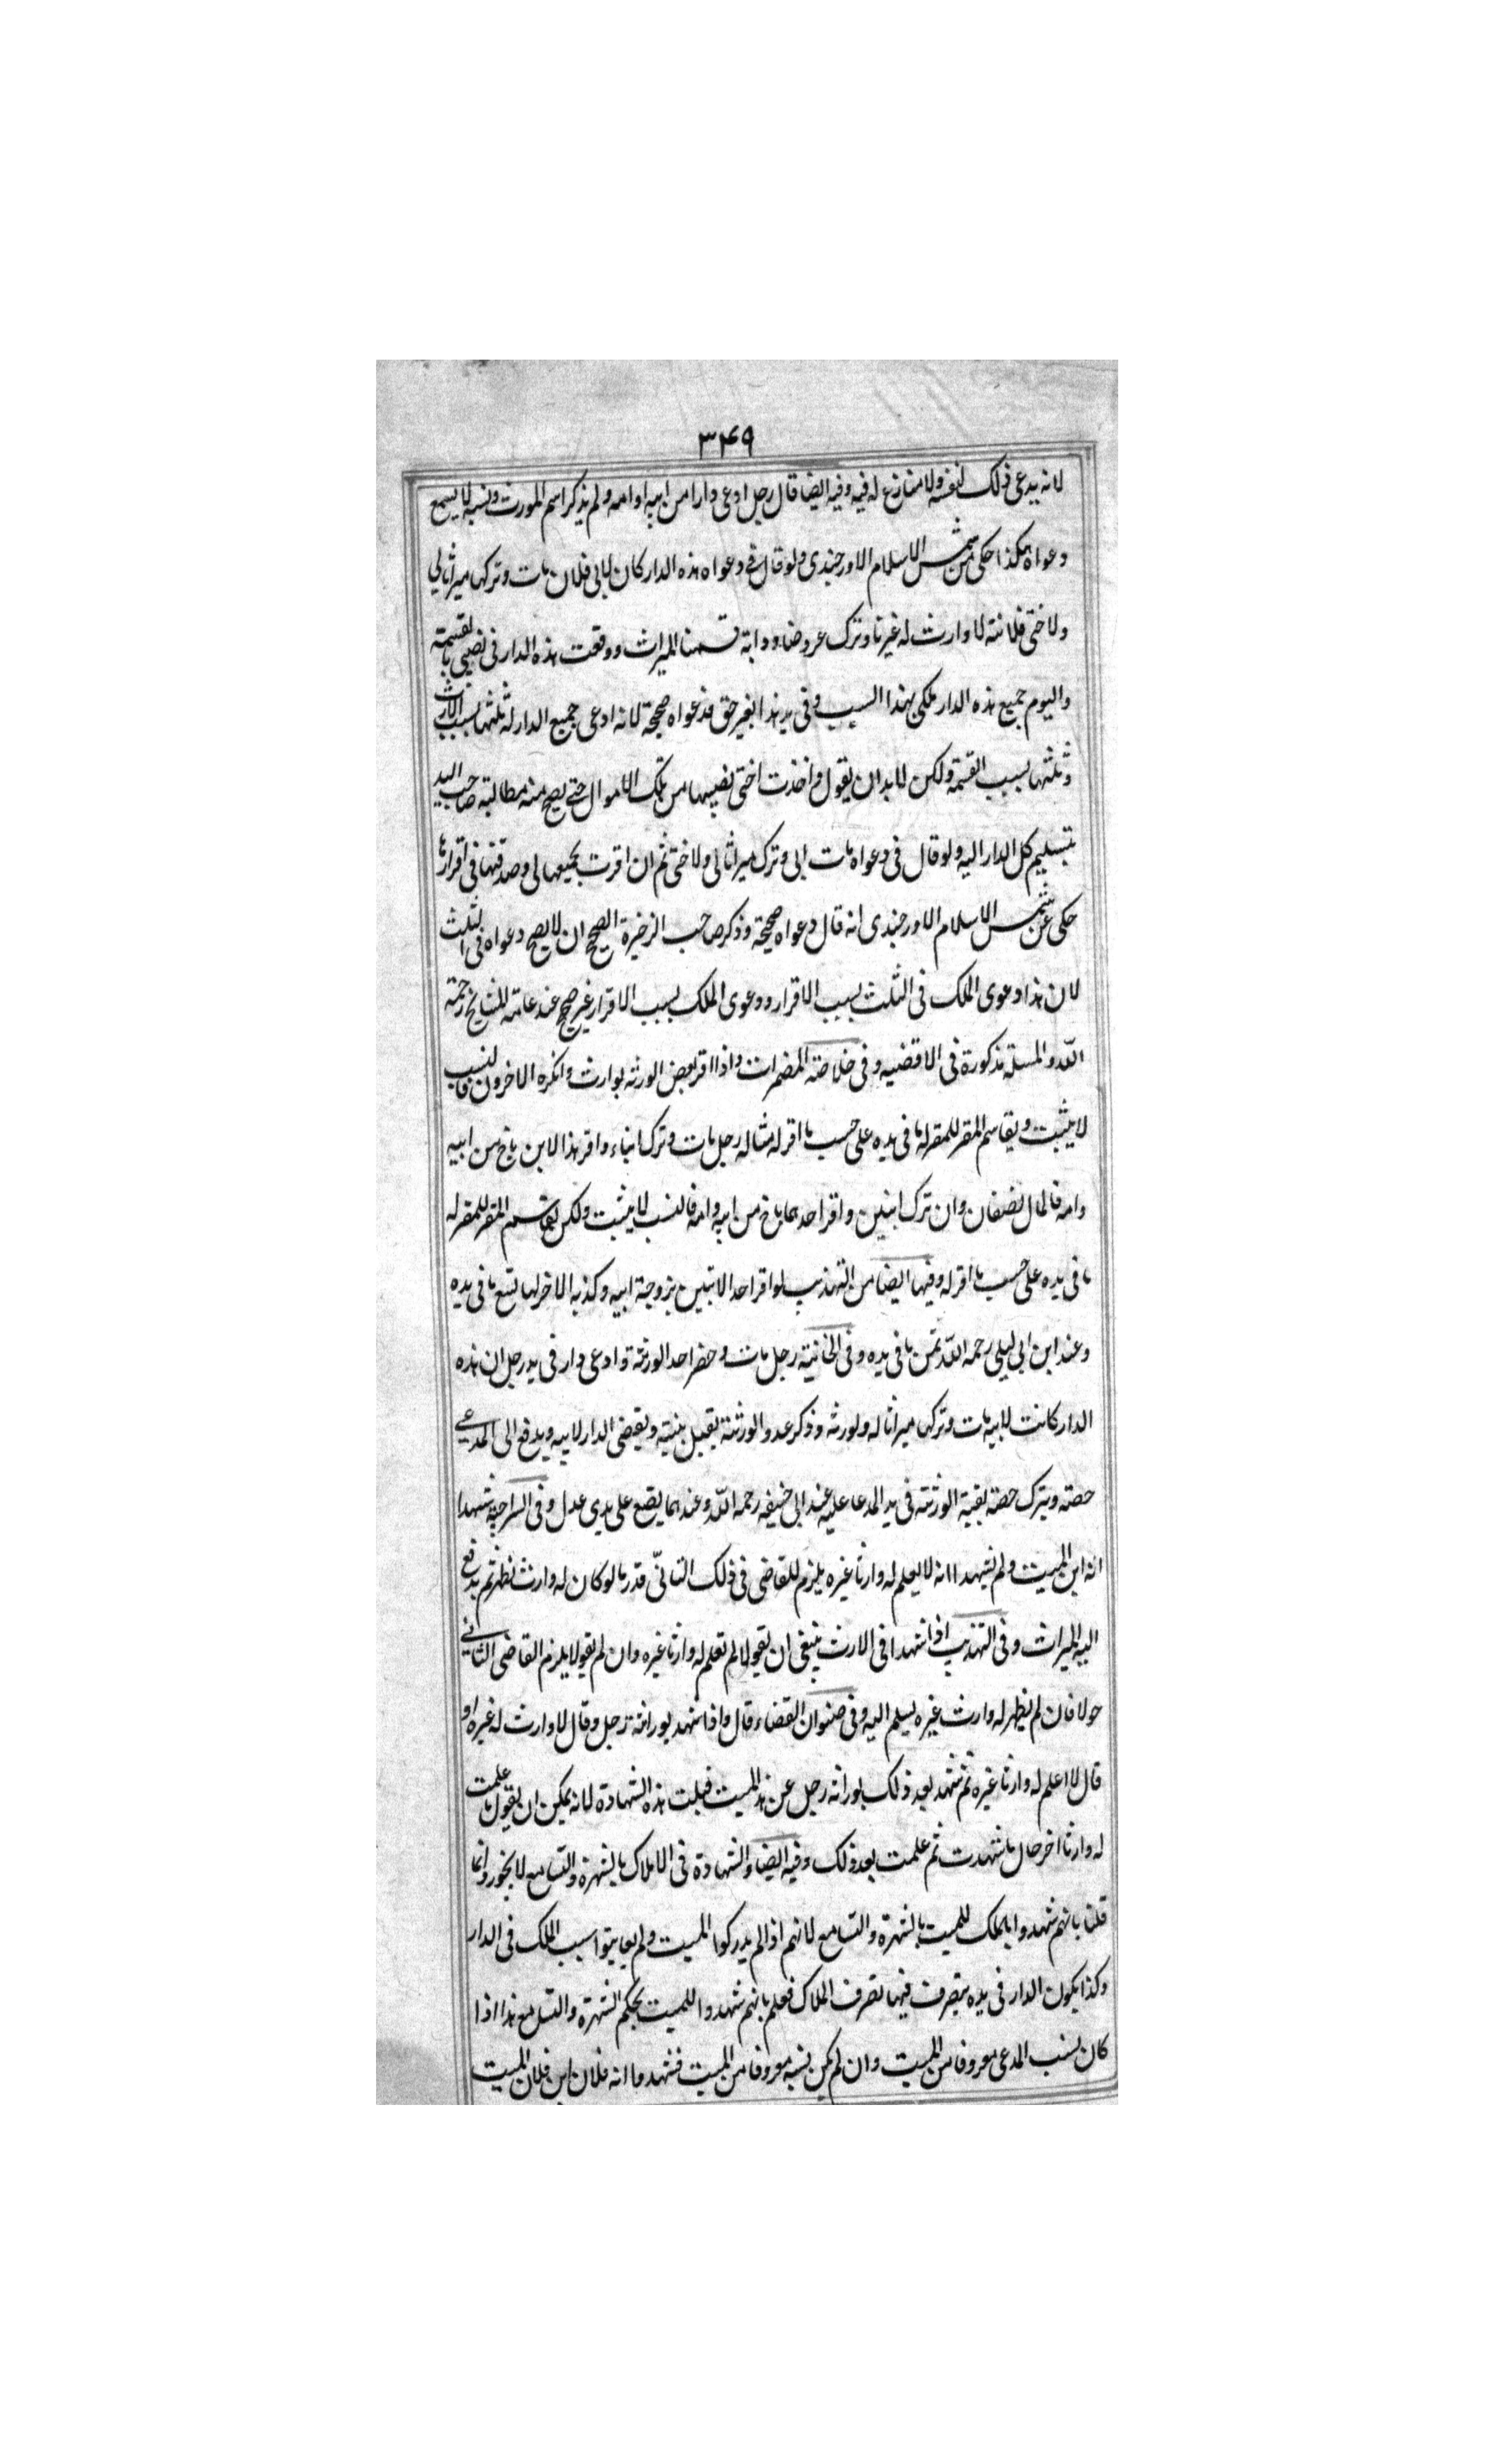 ۳۴۹
لانه يدعى ذلك لنفسه ولا منازع له فيه وفيه ايضا قال رجل ادعى دارا من ابيه او امه ولم يذكر اسم المورث ونسبه لا يسمع
دعواه هكذا حكى عن شمس الاسلام الاورجندى ولو قال فى دعواه هذه الدار كان لابى فلان مات وتركها ميراثا لى
ولاختى فلانة لا وارث له غيرنا وترك عروضا ودابة قسمنا الميراث ووقعت هذه الدار فى نصيبى بالقسمة
واليوم جميع هذه الدار ملكى بهذا السبب وفى يد هذا بغير حق فدعواه صحيحة لانه ادعى جميع الدار له ثلثها بسبب الارث
وثلثها بسبب القسمة ولكن لا بد ان يقول واخذت اختى نصيبها من تلك الاموال حتى يصح منه مطالبة صاحب اليد
بتسليم كل الدار اليه ولو قال فى دعواه مات ابى وترك ميراثا لى ولاختى ثم ان اقرت بجميعها لى وصدقتها فى اقرارها
حكى عن شمس الاسلام الاورجندى انه قال دعواه صحيحة وذكر صاحب الزخيرة الصحيح ان لا يصح دعواه فى الثلث
لان هذا دعوى الملك فى الثلث بسبب الاقرار ودعوى الملك بسبب الاقرار غير صحيح عند عامة المشايخ رحمة
الله والمسئلة مذكورة فى الاقضيه وفى خلاصة المضمرات واذا اقر بعض الورثه بوارث وانكره الاخرون فالنسب
لا يثبت ويقاسم المقر للمقر له ما فى يده على حسب ما اقر له مثاله رجل مات وترك ابناء واقر هذا الابن باخ من ابيه
وامه فالمال نصفان وان ترك ابنين واقر احدهما باخ من ابيه وامه فالنسب لا يثبت ولكن يقاسم المقر للمقر له
ما فى يده على حسب ما اقر له وفيها ايضا من التهذيب لو اقر احد الابنين بزوجة ابيه وكذبه الاخر لها تسع ما فى يده
وعند ابن ابى ليلى رحمه الله ثمن ما فى يده وفى الخانية رجل مات وحضر احد الورثة وادعى دار فى يد رجل ان هذه
الدار كانت لابيه مات وتركها ميراثا له ولورثه وذكر عدد الورثة يقبل بينته ويقضى الدار لابيه ويدفع الى المدعى
حصته ويترك حصة بقية الورثة فى يد المدعا عليه عند ابى حنيفه رحمه الله وعندهما يضع على يدى عدل وفى السراجية شهدا
انه ابن الميت ولم يشهدا انه لا يعلم له وارثا غيره يلزم للقاضى فى ذلك التانى قدر ما لو كان له وارث نظر ثم يدفع
اليه الميراث وفى التهذيب اذا شهدا فى الارث ينبغى ان يقولا لم نعلم له وارثا غيره وان لم يقولا يلزم القاضى التانى
حولا فان لم يظهر له وارث غيره يسلم اليه وفى صنوان القضاء قال واذا شهد بوراثة رجل وقال لا وارث له غيره او
قال لا اعلم له وارثا غيره ثم شهد بعد ذلك بوراثه رجل عن هذا الميت قبلت هذه الشهادة لانه يمكن ان يقول ما علمت
له وارثا اخر حال ما شهدت ثم علمت بعد ذلك وفيه ايضا والشهادة فى الاملاك بالشهرة والتسامع لا يجوز وانما
قلنا بانهم شهدوا بالملك للميت بالشهرة والتسامع لانهم اذا لم يدركوا الميت ولم يعاينوا سبب الملك فى الدار
وكذا يكون الدار فى يده يتصرف فيها تصرف الملاك فعلم بانهم شهدوا للميت بحكم الشهرة والتسامع هذا اذا
كان نسب المدعى معروفا من الميت وان لم يكن نسبه معروفا من الميت فشهدوا انه فلان ابن فلان الميت